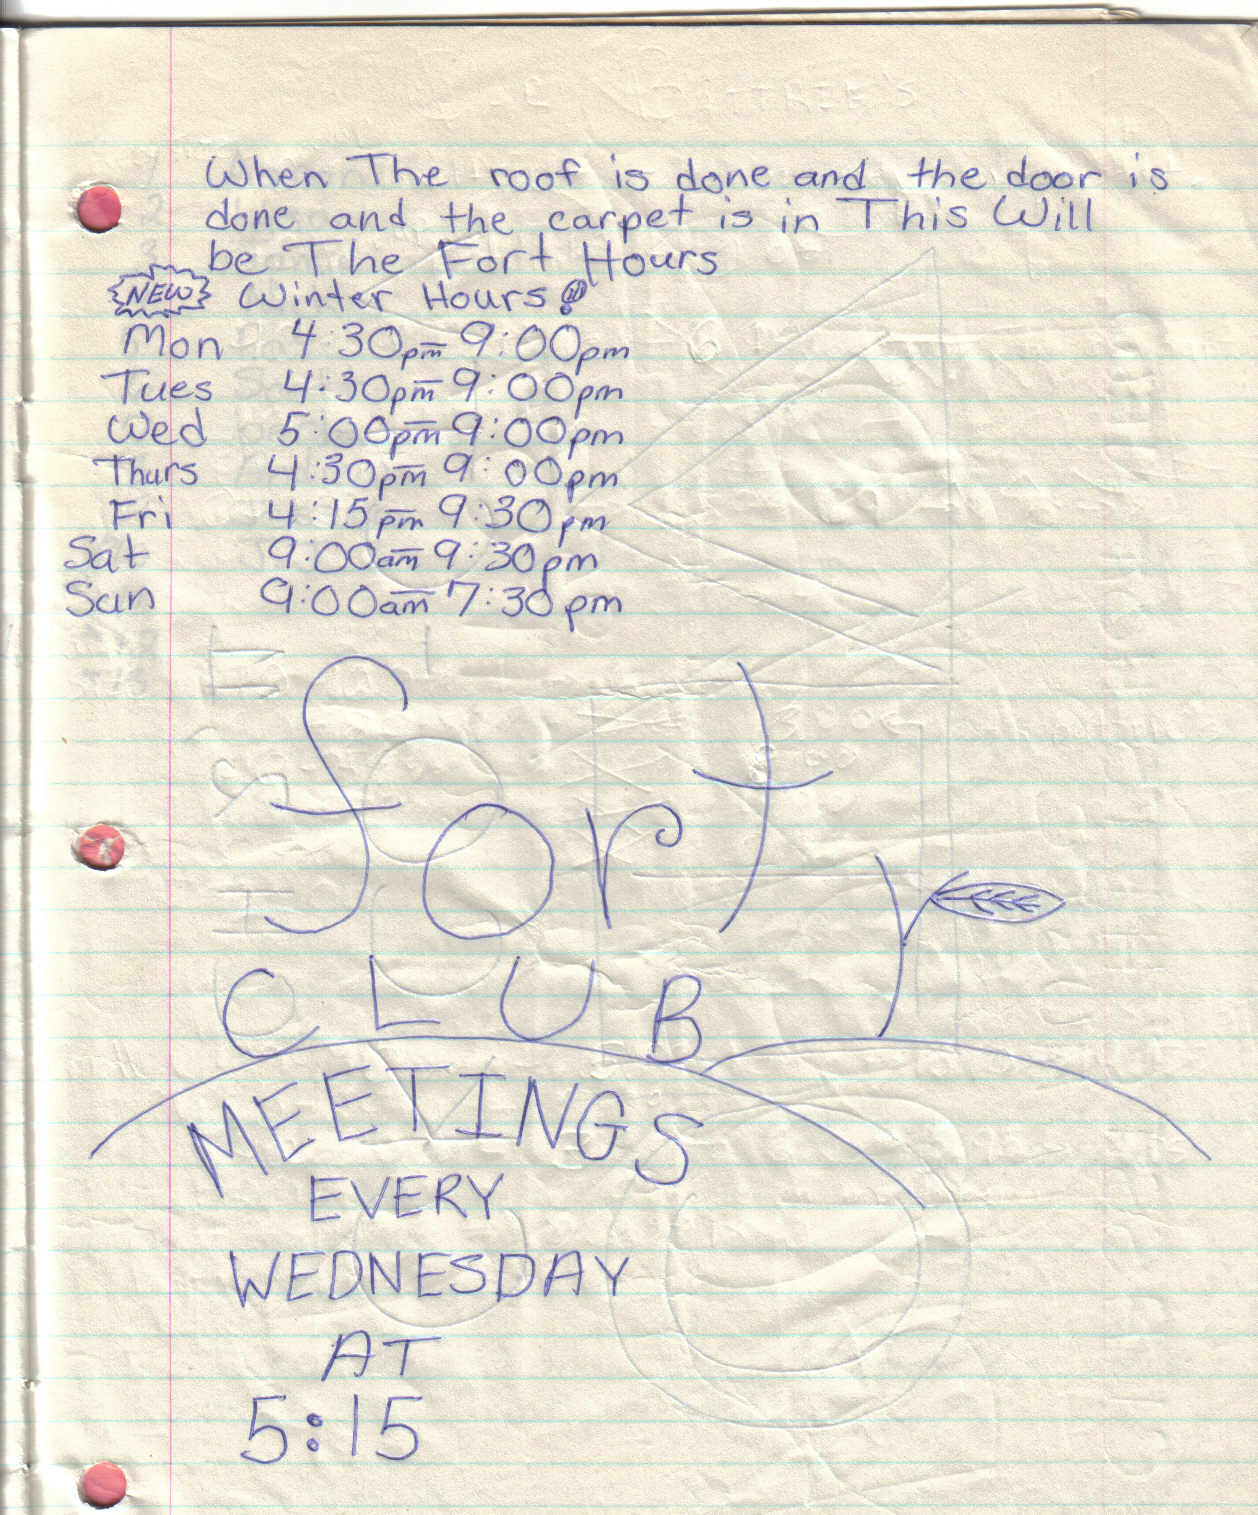 When The roof is done and the door is
done and the carpet is in This Will
be The Fort Hours
NEW Winter Hours!
Mon 4:30pm-9:00pm
Tues 4:30pm-9:00pm
Wed 5:00pm-9:00pm
Thurs 4:30pm-9:00pm
Fri 4:15pm-9:30pm
Sat 9:00am-9:30pm
Sun 9:00am-7:30pm
fort
CLUB
MEETINGS
EVERY
WEDNESDAY
AT
5:15